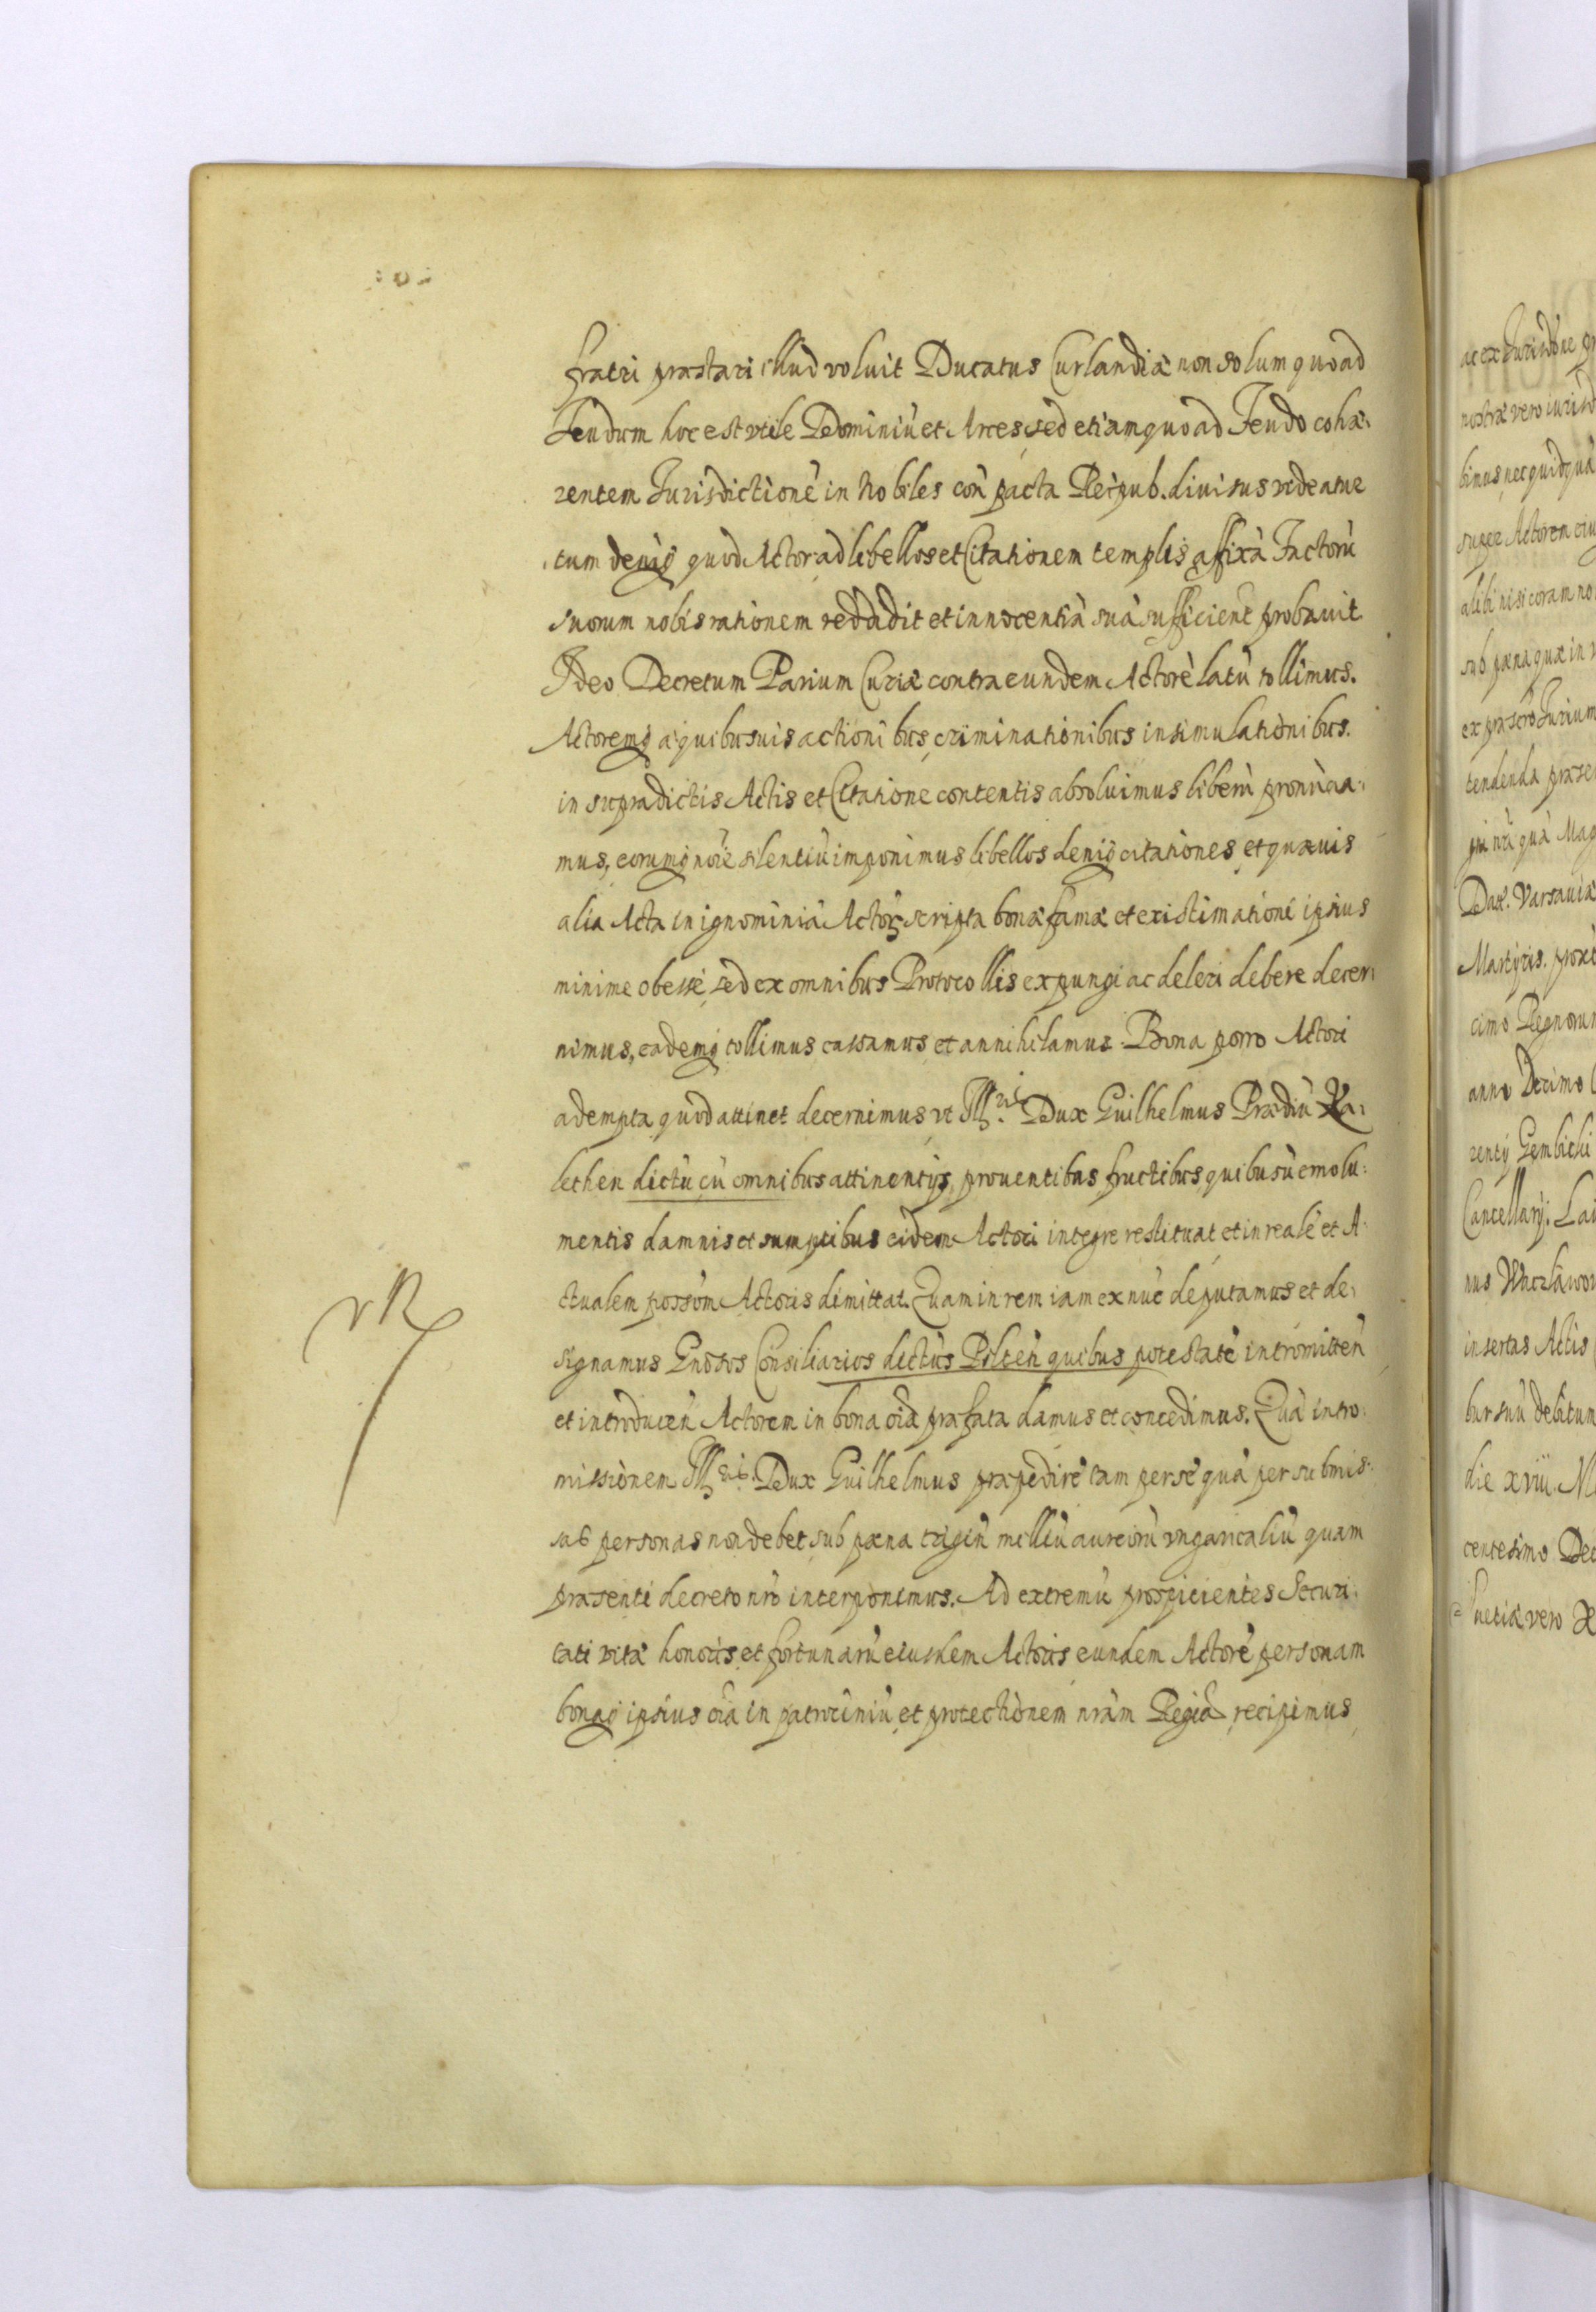 fratri præstari illud voluit Ducatus Curlandiæ non solum quoad
Feudum hoc est vtile Dominiũ et Arces, sed etiam quoad Feudo cohæ:
rentem Jurisdictionẽ in nobiles con pacta Reipub. diuisus videatue
tum deniq; quod Actor ad libellos et Citationem templis affixã Factorũ
suorum nobis rationem reddidit et innocentiã suã sufficienẽ probauit
Ideo Decretum Parium Curiæ contra eundem Actorẽ latũ tollimus.
Actoremq; a quibusuis actionibus, criminationibus insimulationibus.
in supradictis Actis et Citatione contentis absoluimus liberũ pronũcia:
mus, eorumq; noĩe silentiũ imponimus libellos deniq; citationes, et quæuis
alia Acta in ignominiã Actoris scripta bonæ famæ et existimationi ipsius
minime obesse, sed ex omnibus Protocollis expungi ac deleri debere decer:
nimus, eademq; tollimus cassamus et annihilamus. Bona porro Actori
adempta quod attinet decernimus vt Ill. Dux Guilhelmus Prædiũ Xa:
lethen dictũ cũ omnibus attinentÿs, prouentibus fructibus, quibusũ emolu:
mentis damnis et sumptibus eidem Actori integre restituat et in realẽ et A:
ctualem possõm Actoris dimittat. Quam in rem iam ex nũc deputamus et de:
signamus Gnõsos Consiliarios dictũs Pilteñ quibus potestatẽ intromitteñ
et introduceñ Actorem in bona oĩa præfata damus et concedimus. Quã intro:
missionem Ill. Dux Guilhelmus præpedire tam per se quã per submis:
sas personas non debet, sub pæna trigiñ milliũ aureorũ vngaricaliũ quam
præsenti decreto nr̃o interponimus. Ad extremũ prospicientes Securi:
tati vitæ honoris, et fortunarũ eiusdem Actoris, eundem Actorẽ personam
bonaq; ipsius oĩa in patrociniũ, et protectionem nrãm Regiã recipimus
ac ex Jurisdõne
nostræ vero iurisd
binus, nec quidquã
super Actorem eiu
alibi nisi coram no
sub pæna quæ in
ex præscro Jurium
tendenda præse
Mag
Dat. Varsauiæ
Martÿris. proxi
cimo Regnorum
anno Decimo
rentÿ Gembicki
Cancellarÿ.
insertas Actis
debitum
die xviii. M
centesimo Dec
Suetiæ vero